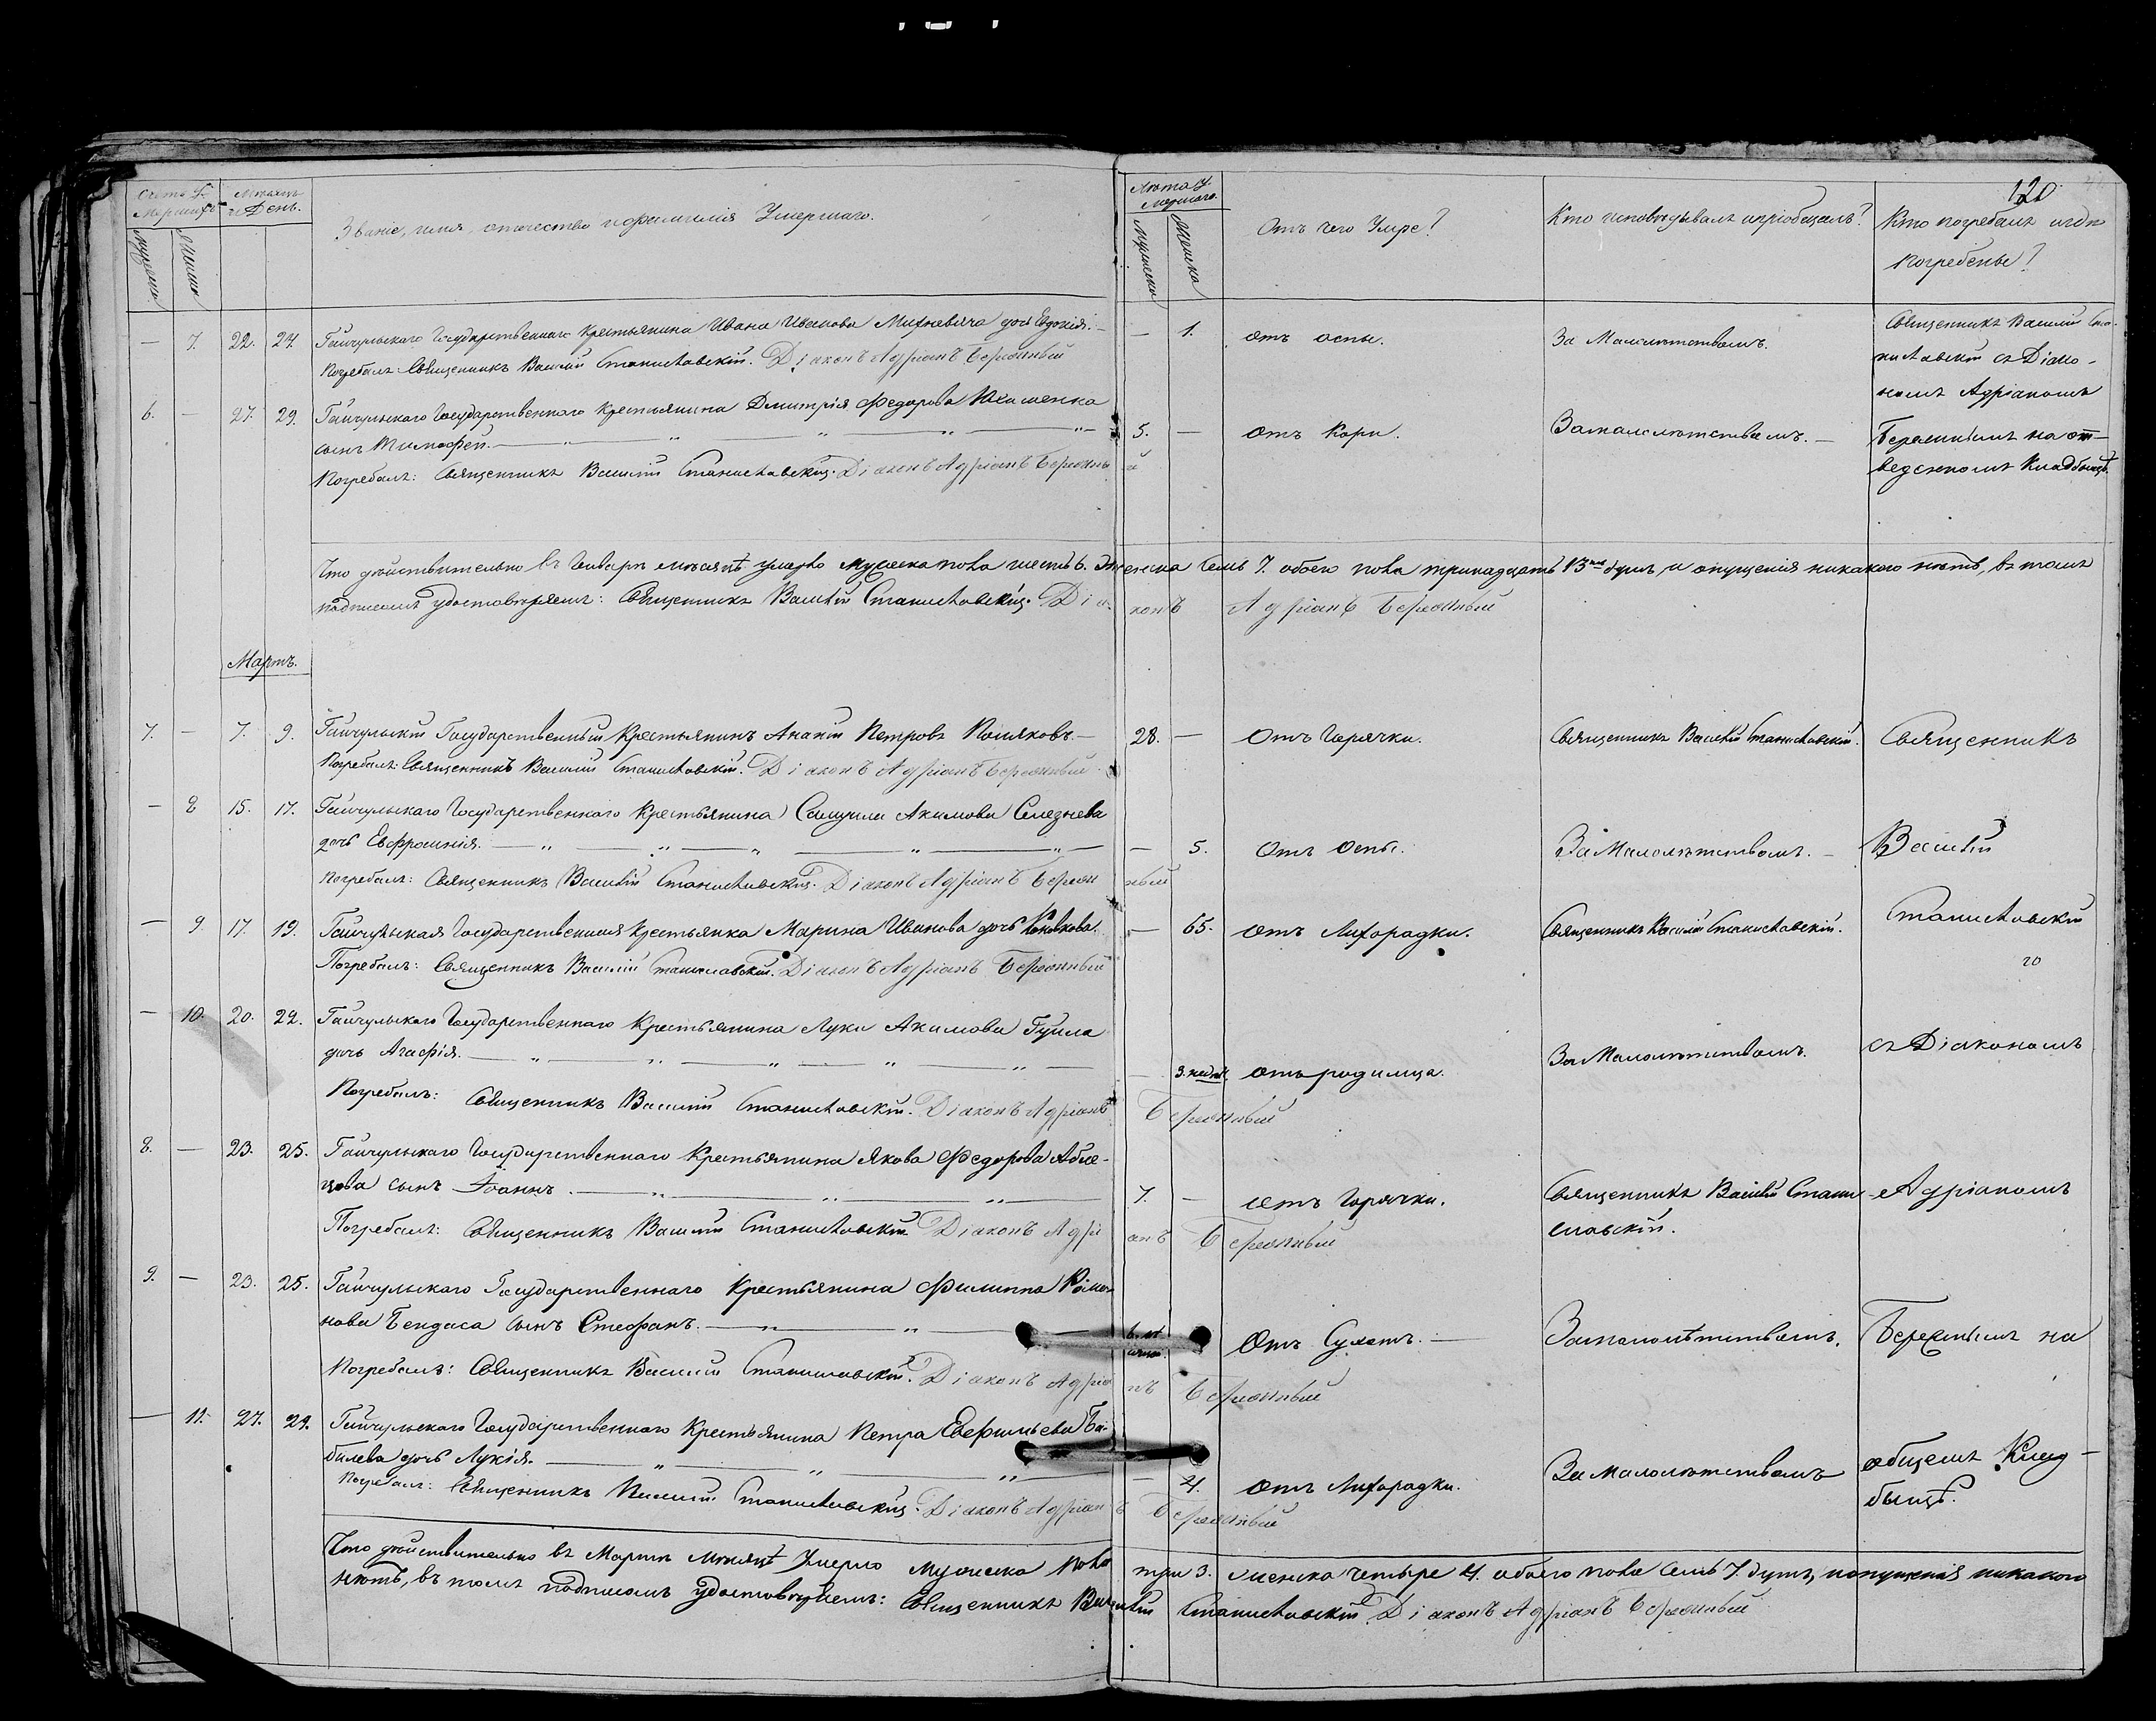 120
Счетъ У-
мершихъ
Мѣсяцъ
и День.
Званіе, имя, отчество и фамилія Умершаго.
Лѣта У-
мершаго.
Отъ чего Умре?
Кто исповѣдывалъ и пріобщалъ?
Кто погребалъ и гдѣ
погребены?
мужеска
женска
мужеска
женска
— 7. 22. 24. Гайчульскаго Государственнаго Крестьянина Ивана Иванова Михневича дочь Евдокія. — — 1. отъ оспы. За Малолѣтствомъ. Священникъ Василій Ста-
Погребалъ: Священникъ Василій Станиславскій. Діаконъ Адріанъ Бережный
ниславскій съ Діако-
номъ Адріаномъ
6. — 27. 29. Гайчульскаго Государственнаго Крестьянина Димитрія Федорова Юхименка
сынъ Тимофей. 5. — отъ Кори. За малолѣтствомъ. — Бережнымъ на от-
Погребалъ: Священникъ Василій Станиславскій. Діаконъ Адріанъ Бережный
веденномъ Кладбищѣ.
Что дѣйствительно въ Январѣ мѣсяцѣ умерло мужеска пола шесть 6. женска семь 7. обоего пола тринадцать 13 душъ, и опущенія никакого нѣтъ, въ томъ
подписомъ удостовѣряемъ: Священникъ Василій Станиславскій. Діаконъ Адріанъ Бережный
Мартъ.
7. — 7. 9. Гайчульскій Государственный Крестьянинъ Ананій Петровъ Поляковъ. — 28. — Отъ Горячки. Священникъ Василій Станиславскій. Священникъ
Погребалъ: Священникъ Василій Станиславскій. Діаконъ Адріанъ Бережный
— 8 15. 17. Гайчульскаго Государственнаго Крестьянина Самуила Акимова Селезнева
дочь Евфросинія. — 5. Отъ Оспы. За Малолѣтствомъ. — Василій
Погребалъ: Священникъ Василій Станиславскій. Діаконъ Адріанъ Бережный
— 9 17. 19. Гайчульская Государственная Крестьянка Марина Иванова дочь — 65. отъ Лихорадки. Священникъ Василій Станиславскій. Станиславскій
Погребалъ: Священникъ Василій Станиславскій. Діаконъ Адріанъ Бережный
— 10. 20. 22. Гайчульскаго Государственнаго Крестьянина Луки Акимова Гуйла
дочь Агафія. — 3. недѣл. отъ родимца. За Малолѣтствомъ. съ Діакономъ
Погребалъ: Священникъ Василій Станиславскій. Діаконъ Адріанъ Бережный
8. — 23. 25. Гайчульскаго Государственнаго Крестьянина Якова Федорова Абле-
цова сынъ Іоаннъ. 7. — отъ Горячки. Священникъ Василій Стани- Адріаномъ
славскій.
Погребалъ: Священникъ Василій Станиславскій Діаконъ Адріанъ Бережный
9. — 23. 25. Гайчульскаго Государственнаго Крестьянина Филиппа Рома-
нова Бендаса сынъ Стефанъ. Отъ Сухотъ. — За малолѣтствомъ. Бережнымъ на
Погребалъ: Священникъ Василій Станиславскій. Діаконъ Адріанъ Бережный
— 11. 27. 29. Гайчульскаго Государственнаго Крестьянина Петра Евфимьева Ба-
билева дочь Лукія. — 4. отъ Лихорадки. За Малолѣтствомъ общемъ Клад-
бищѣ.
Погребалъ: Священникъ Василій Станиславскій. Діаконъ Адріанъ Бережный
Что дѣйствительно въ Мартѣ Мѣсяцѣ Умерло мужеска пола три 3. женска четыре 4. обоего пола семь 7 душъ, и опущенія никакого
нѣтъ, въ томъ подписомъ удостовѣряемъ: Священникъ Василій Станиславскій. Діаконъ Адріанъ Бережный